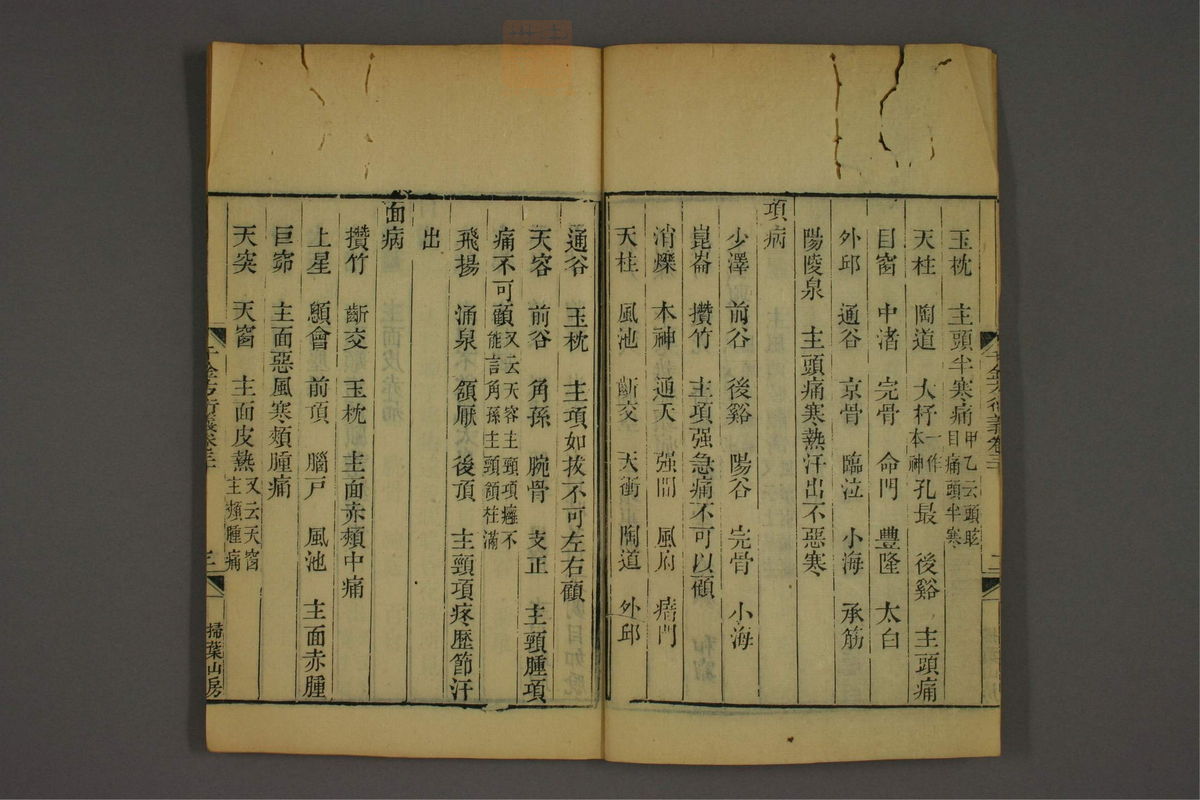 玉枕 主頭半寒痛甲乙云頭眩目痛頭半寒
天柱 陶道 大杼一作本神孔最 後谿 主頭痛
目窗 中渚 完骨 命門 豐隆 太白
外邱 通谷 京骨 臨泣 小海 承筋
陽陵泉 主頭痛寒熱汗出不惡寒
項病
少澤 前谷 後谿 陽谷 完骨 小海
崑崙 攢竹 主項强急痛不可以顧
消爍 本神 通天 强間 風府 瘖門
天柱 風池 齗交 天衝 陶道 外邱
通谷 玉枕 主項如拔不可左右顧
天容 前谷 角孫 腕骨 支正 主頸腫項
痛不可顧又云天容主頸項癰不能言角孫主頸頷柱滿
飛揚 涌泉 頷厭 後頂 主頸項疼歷節汗
出
面病
攢竹 齗交 玉枕 主面赤頰中痛
上星 顖會 前頂 腦戶 風池 主面赤腫
巨窌 主面惡風寒頰腫痛
天突 天窗 主面皮熱又云天窗主頰腫痛
千金方衍義卷三十 三 掃葉山房